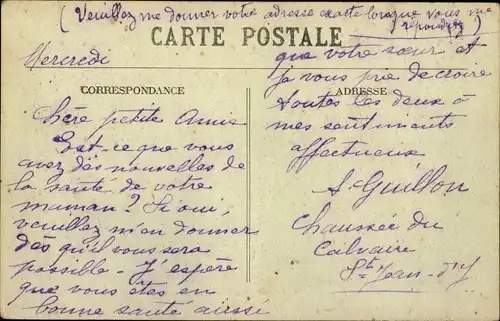 (Veuillez me donner votre adresse exacte lorsque vous me
répondrez)
CARTE POSTALE
Mercredi
CORRESPONDANCE
Chère petite Amie
Est-ce que vous
avez des nouvelles de
la santé de votre
maman? Si oui,
veuillez m'en donner
dès qu'il vous sera
possible - J'espère
que vous êtes en
bonne santé aussi
que votre sœur et
je vous prie de croire
ADRESSE
toutes les deux à
mes sentiments
affectueux
Guillon
Chaussée du
Calvaire
St-Jean-d'Y